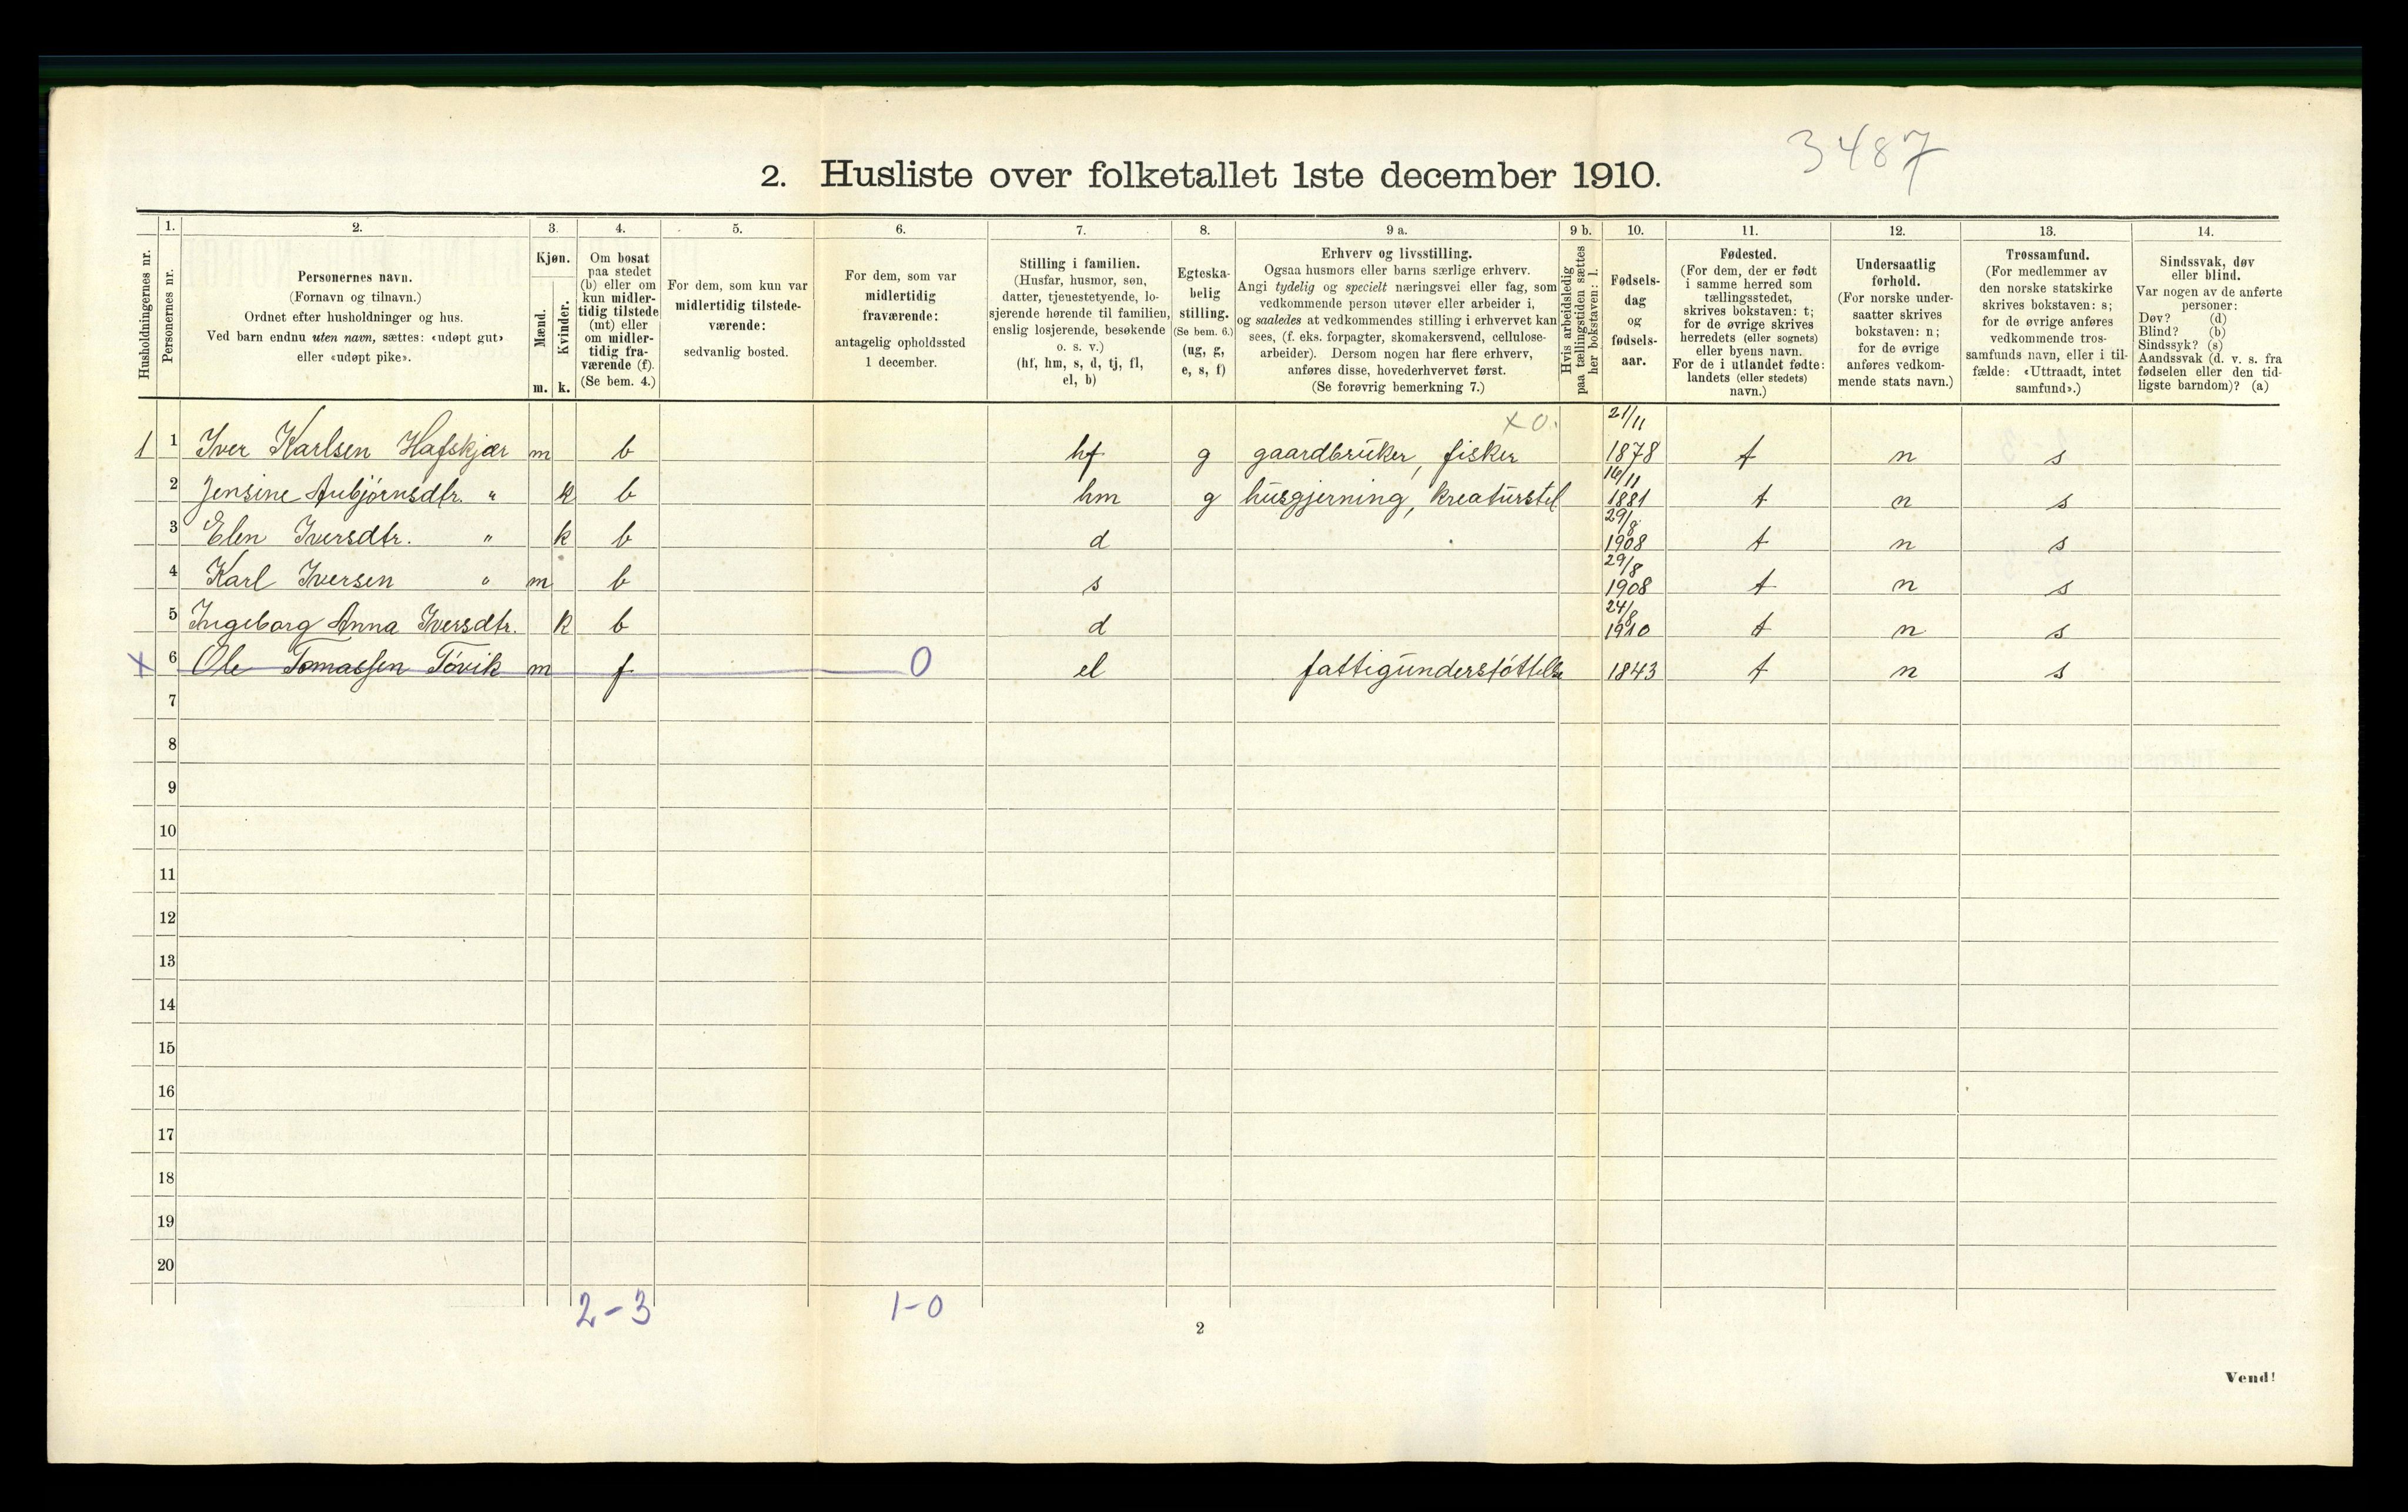 3487
2. Husliste over folketallet 1ste december 1910.
Husholdningernes nr.
1.
Personernes nr.
2.
Personernes navn.
(Fornavn og tilnavn.)
Ordnet efter husholdninger og hus.
Ved barn endnu uten navn, sættes: «udøpt gut»
eller «udøpt pike».
3.
Kjøn.
Mænd.
Kvinder.
m. k.
4.
Om bosat
paa stedet
(b) eller om
kun midler-
tidig tilstede
(mt) eller
om midler-
tidig fra-
værende (f).
(Se bem. 4.)
5.
For dem, som kun var
midlertidig tilstede-
værende:
sedvanlig bosted.
6.
For dem, som var
midlertidig
fraværende:
antagelig opholdssted
1 december.
7.
Stilling i familien.
(Husfar, husmor, søn,
datter, tjenestetyende, lo-
sjerende hørende til familien,
enslig losjerende, besøkende
o. s. v.)
(hf, hm, s, d, tj, fl,
el, b)
8.
Egteska-
belig
stilling.
(Se bem. 6.)
(ug, g,
e, s, f)
9 a.
Erhverv og livsstilling.
Ogsaa husmors eller barns særlige erhverv.
Angi tydelig og specielt næringsvei eller fag, som
vedkommende person utøver eller arbeider i,
og saaledes at vedkommendes stilling i erhvervet kan
sees, (f. eks. forpagter, skomakersvend, cellulose-
arbeider). Dersom nogen har flere erhverv,
anføres disse, hovederhvervet først.
(Se forøvrig bemerkning 7.)
9 b.
Hvis arbeidsledig
paa tællingstiden sættes
her bokstaven: l.
10.
Fødsels-
dag
og
fødsels-
aar.
11.
Fødested.
(For dem, der er født
i samme herred som
tællingsstedet,
skrives bokstaven: t;
for de øvrige skrives
herredets (eller sognets)
eller byens navn.
For de i utlandet fødte:
landets (eller stedets)
navn.)
12.
Undersaatlig
forhold.
(For norske under-
saatter skrives
bokstaven: n;
for de øvrige
anføres vedkom-
mende stats navn.)
13.
Trossamfund.
(For medlemmer av
den norske statskirke
skrives bokstaven: s;
for de øvrige anføres
vedkommende tros-
samfunds navn, eller i til-
fælde: «Uttraadt, intet
samfund».)
14.
Sindssvak, døv
eller blind.
Var nogen av de anførte
personer:
Døv? (d)
Blind? (b)
Sindssyk? (s)
Aandssvak (d. v. s. fra
fødselen eller den tid-
ligste barndom)? (a)
x 0. 21/11
1 1 Iver Karlsen Hafskjær m b hf g gaardbruker, fisker 1878 t n s
16/11
2 Jensine Anbjørnsdtr. " k b hm g husgjerning, kreaturstel 1881 t n s
29/8
3 Elen Iversdtr. " k b d 1908 t n s
29/8
4 Karl Iversen " m b s 1908 t n s
24/8
5 Ingeborg Anna Iversdtr. k b d 1910 t n s
x 6 Ole Tomassen Tövik m f 0 el fattigunderstöttelse 1843 t n s
7
8
9
10
11
12
13
14
15
16
17
18
19
20
2-3 1-0
2
Vend!